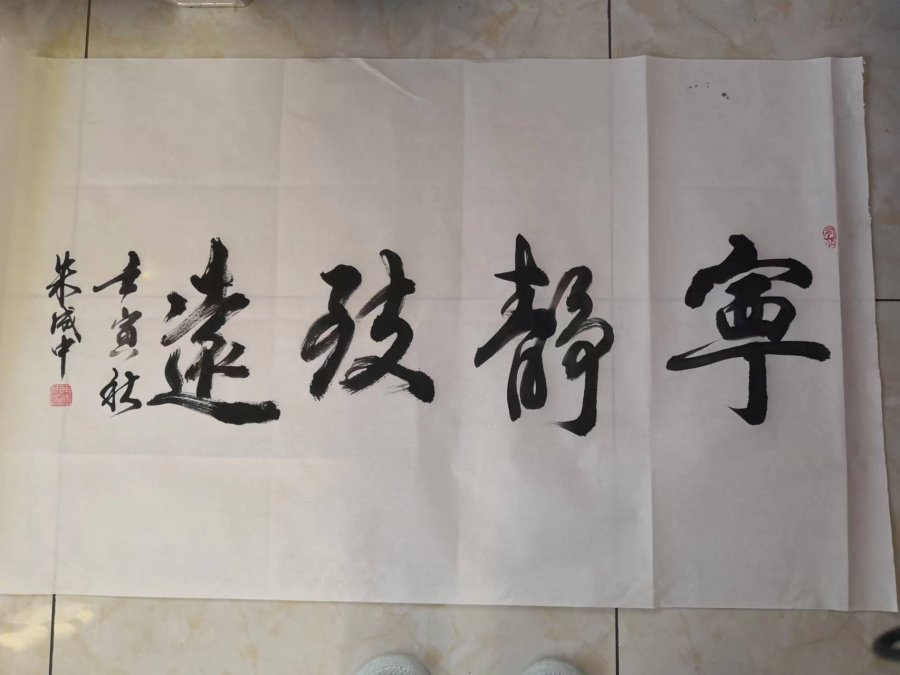 寧靜致遠
壬寅秋
朱成中